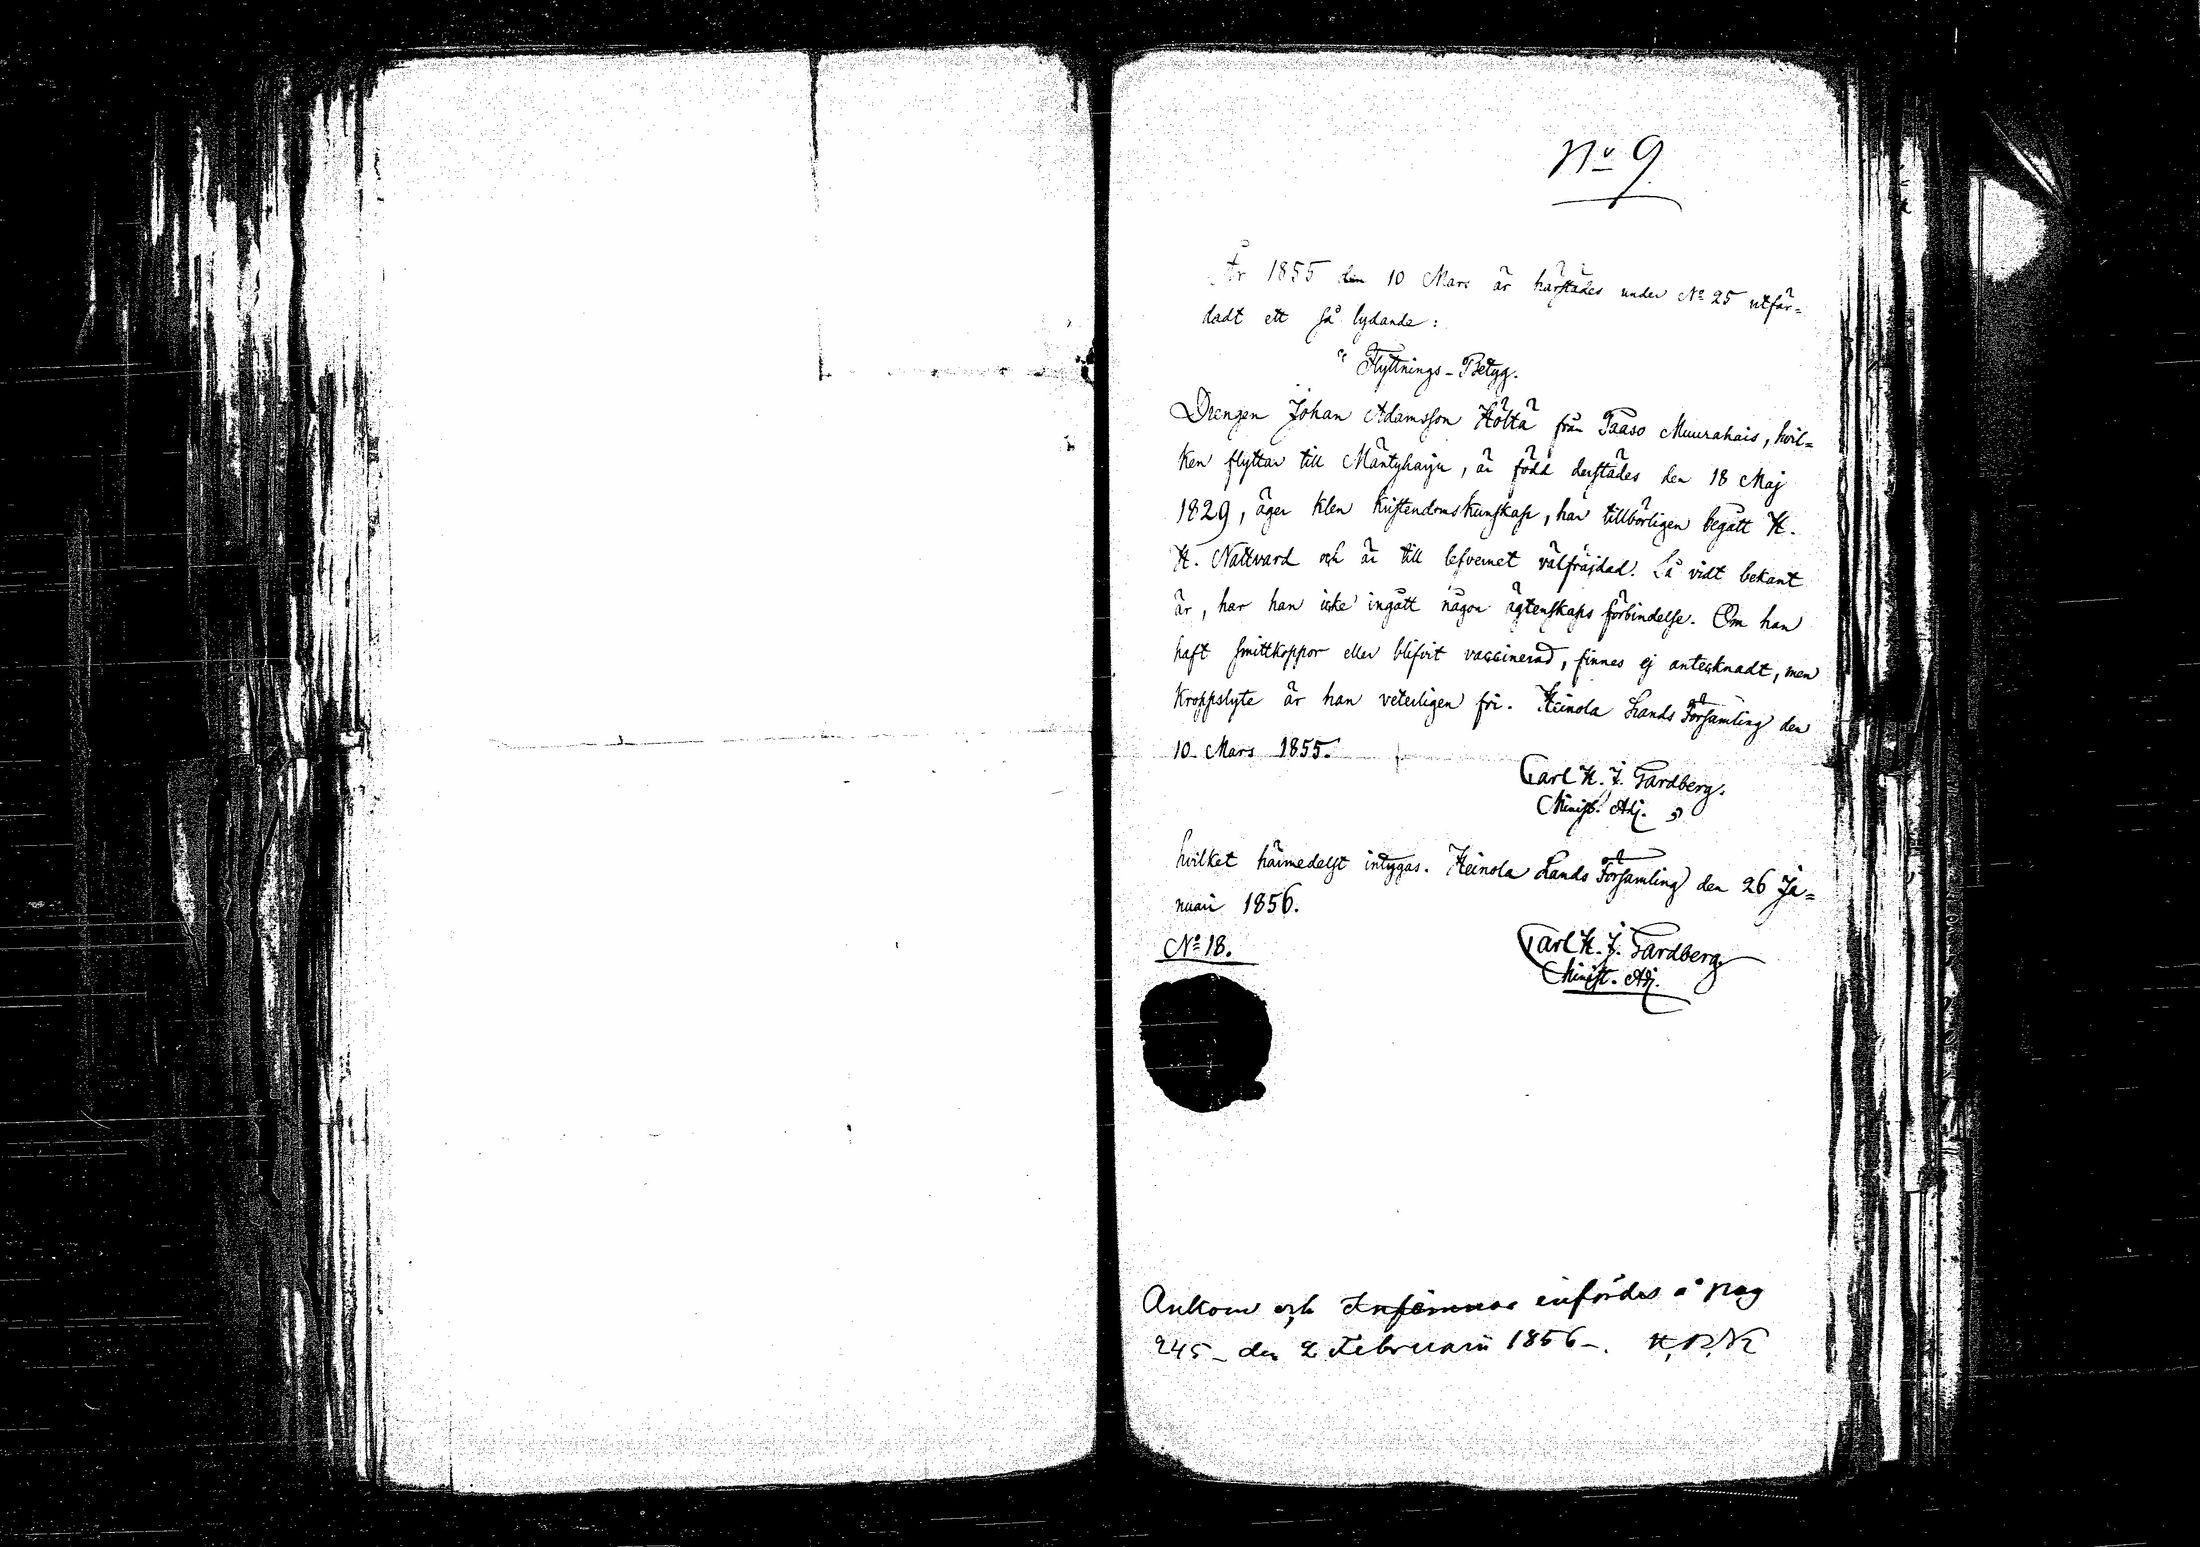 No 9
År 1855 den 10 Mars är härstädes under No 25 utfär=
dadt ett så lydande:
"Flyttnings-Betyg.
Drengen Johan Adamsson Höltä från Paaso Muurahais, hvil=
ken flyttar till Mäntyharju, är född derstädes den 18 Maj
1829, äger klen kristendomskunskap, har tillbörligen begått H.
H. Nattvard och är till lefvernet välfräjdad. Så vidt bekant
är, har han icke ingått någon ägtenskaps förbindelse. Om han
haft smittkoppor eller blifvit vaccinerad, finnes ej antecknadt, men
kroppslyte är han veterligen fri. Heinola Lands Församling den
10 Mars 1855.
Carl H. J. Gardberg.
Minist. Adj. "
hvilket härmedelst intygas. Heinola Lands Församling den 26 Ja=
nuari 1856.
No 18.
Carl H. J. Gardberg
Minist. Adj.
Ankom och infördes å pag
245 - den 2 Februarii 1856 -.